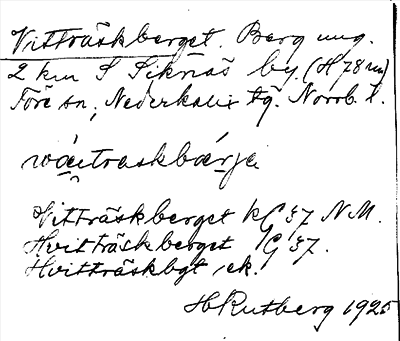 Vitträskberget. Berg ung.
2 km S Siknäs by. (H 78 m)
Töre sn, Nederkalix tg. Norrb. l.
wäitraskbärje
Vitträskberget kG 37 NM.
Hvitträskberget G 37.
Hvitträskbgt, ek.
HRutberg 1925